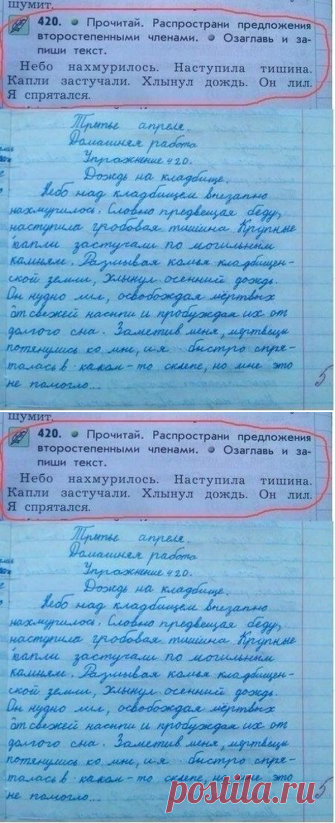 420. Прочитай. Распространи предложения
второстепенными членами. Озаглавь и за-
пиши текст.
Небо нахмурилось. Наступила тишина.
Капли застучали. Хлынул дождь. Он лил.
Я спрятался.
Третье апреля.
Домашняя работа
Упражнение 420.
Дождь на кладбище.
Небо над кладбищем внезапно
нахмурилось. Словно предвещая беду,
наступила гробовая тишина Крупные
капли застучали по могильным
камням. Размывая комья кладбищен-
ской земли, хлынул осенний дождь.
Он нудно лил, освобождая мёртвых
от свежей насыпи и пробуждая их от
долгого сна. Заметив меня, мертвецы
потянулись ко мне, и я быстро спря-
талась в каком-то склепе, но мне это
не помогло...
5
шумит.
420. Прочитай. Распространи предложения
второстепенными членами. Озаглавь и за-
пиши текст.
Небо нахмурилось. Наступила тишина.
Капли застучали. Хлынул дождь. Он лил.
Я спрятался.
Третье апреля.
Домашняя работа
Упражнение 420.
Дождь на кладбище.
Небо над кладбищем внезапно
нахмурилось. Словно предвещая беду,
наступила гробовая тишина Крупные
капли застучали по могильным
камням. Размывая комья кладбищен-
ской земли, хлынул осенний дождь.
Он нудно лил, освобождая мёртвых
от свежей насыпи и пробуждая их от
долгого сна. Заметив меня, мертвецы
потянулись ко мне, и я быстро спря-
талась в каком-то склепе, но мне это
не помогло...
5
postila.ru